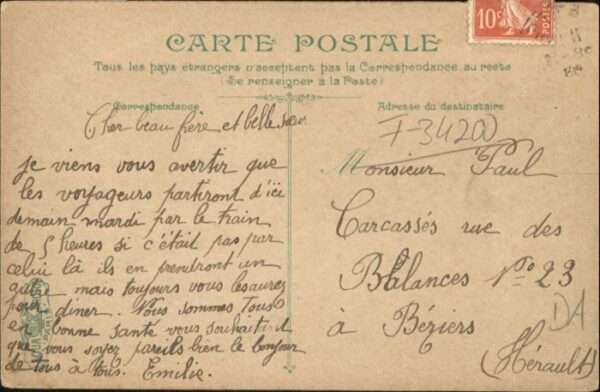 10c
POSTES
CARTE POSTALE
Tous les pays étrangers n'acceptent pas la Correspondance au recto
(Se renseigner à la Poste)
Correspondance
Adresse du destinataire
Cher beau frère et belle sœur
je viens vous avertir que
les voyageurs partiront d'ici
demain mardi par le train
de 5 heures si c'était pas par
celui là ils en prendront un
mais toujours vous les aurez
pour diner. Nous sommes tous
en bonne santé vous souhaitit
que vous soyez pareils bien le bonjour
de tous à tous. Emilie.
F-34200
Monsieur Paul
Carcassés rue des
Balances N° 23
à Béziers
(Hérault)
DA